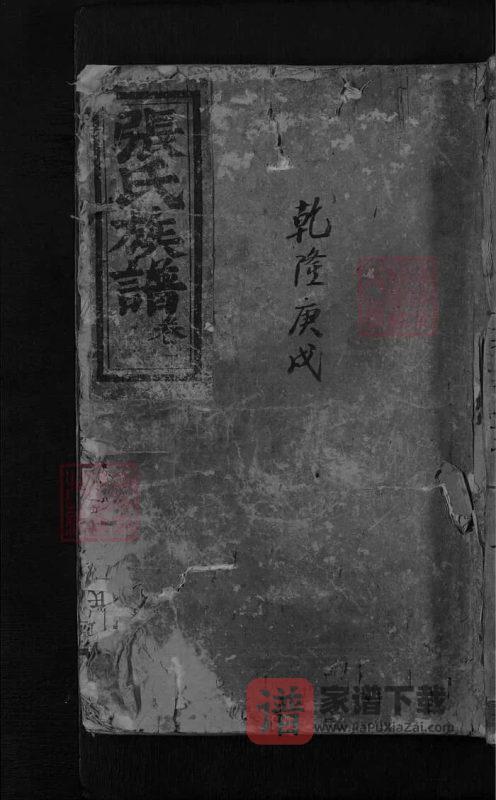 乾隆庚戌
張氏族譜
卷
氏
谱
家谱下载
www.JiaPuXiaZai.com